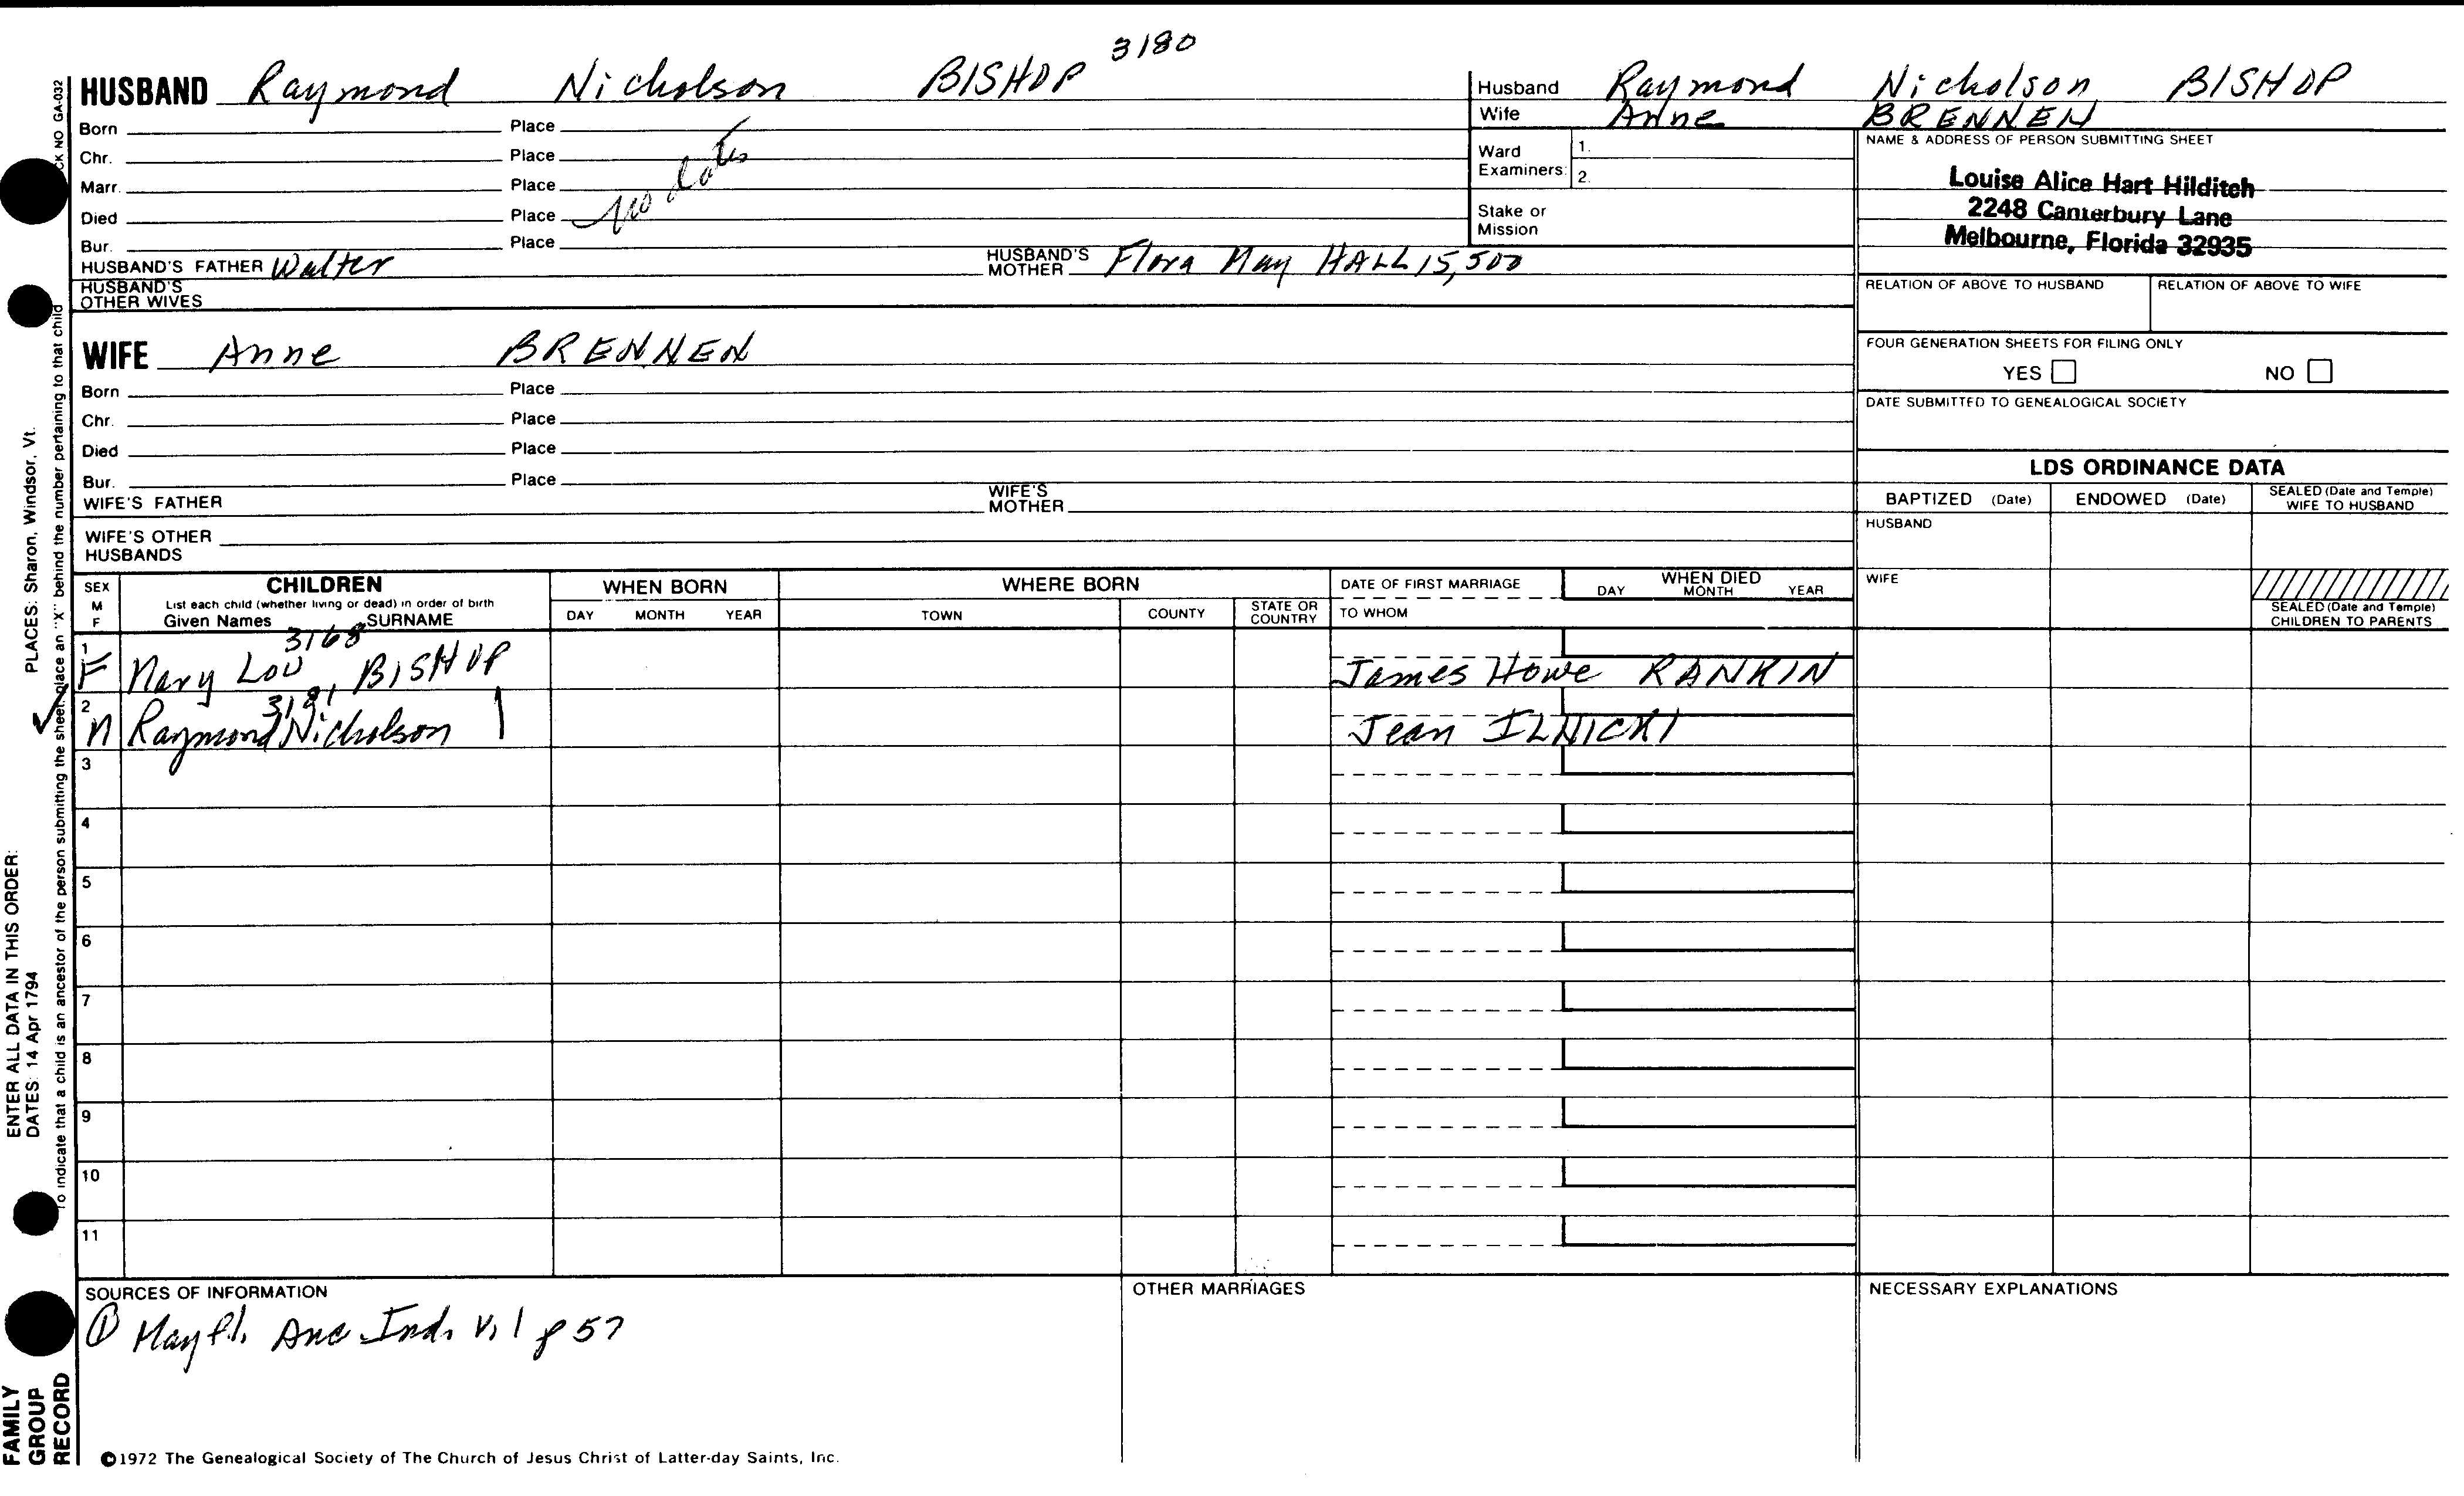 3180
HUSBAND Raymond Nicholson BISHOP
Born Place
Chr. Place
Marr. Place
Died Place
Bur. Place
No dates
HUSBAND'S FATHER Walter HUSBAND'S MOTHER Flora May HALL 15,500
HUSBAND'S OTHER WIVES
WIFE Anne BRENNEN
Born Place
Chr. Place
Died Place
Bur. Place
WIFE'S FATHER WIFE'S MOTHER
WIFE'S OTHER HUSBANDS
Husband Raymond Nicholson BISHOP
Wife Anne BRENNEN
Ward Examiners: 1.
2.
Stake or Mission
NAME & ADDRESS OF PERSON SUBMITTING SHEET
Louise Alice Hart Hilditch
2248 Canterbury Lane
Melbourne, Florida 32935
RELATION OF ABOVE TO HUSBAND RELATION OF ABOVE TO WIFE
FOUR GENERATION SHEETS FOR FILING ONLY
YES NO
DATE SUBMITTED TO GENEALOGICAL SOCIETY
LDS ORDINANCE DATA
BAPTIZED (Date) ENDOWED (Date) SEALED (Date and Temple) WIFE TO HUSBAND
HUSBAND
WIFE
SEALED (Date and Temple) CHILDREN TO PARENTS
SEX M F
CHILDREN
List each child (whether living or dead) in order of birth
Given Names SURNAME
WHEN BORN
DAY MONTH YEAR
WHERE BORN
TOWN COUNTY STATE OR COUNTRY
DATE OF FIRST MARRIAGE
TO WHOM
WHEN DIED
DAY MONTH YEAR
3168
1 F Mary Lou BISHOP James Howe RANKIN
3181
2 M Raymond Nicholson Jean ILNICKI
3
4
5
6
7
8
9
10
11
SOURCES OF INFORMATION
① Mayfl. Anc Ind. V. 1 p 57
OTHER MARRIAGES
NECESSARY EXPLANATIONS
©1972 The Genealogical Society of The Church of Jesus Christ of Latter-day Saints, Inc.
CK NO GA-032
To indicate that a child is an ancestor of the person submitting the sheet, place an "X" behind the number pertaining to that child
ENTER ALL DATA IN THIS ORDER:
DATES: 14 Apr 1794 PLACES: Sharon, Windsor, Vt.
FAMILY
GROUP
RECORD